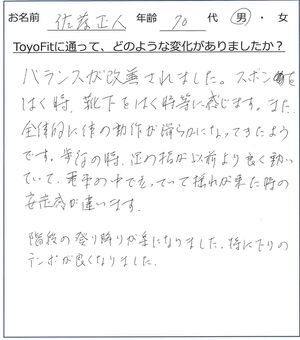 お名前 佐藤正人 年齢 70 代 男・女
ToyoFitに通って、どのような変化がありましたか?
バランスが改善されました。ズボンを
はく時、靴下をはく時等に感じます。また、
全体的に体の動作が滑らかになってきたよう
です。歩行の時、足の指が以前より良く動い
ていて、電車の中で立っていて揺れが来た時の
安定感が違います。
階段の登り降りが楽になりました。特に下りの
テンポが良くなりました。